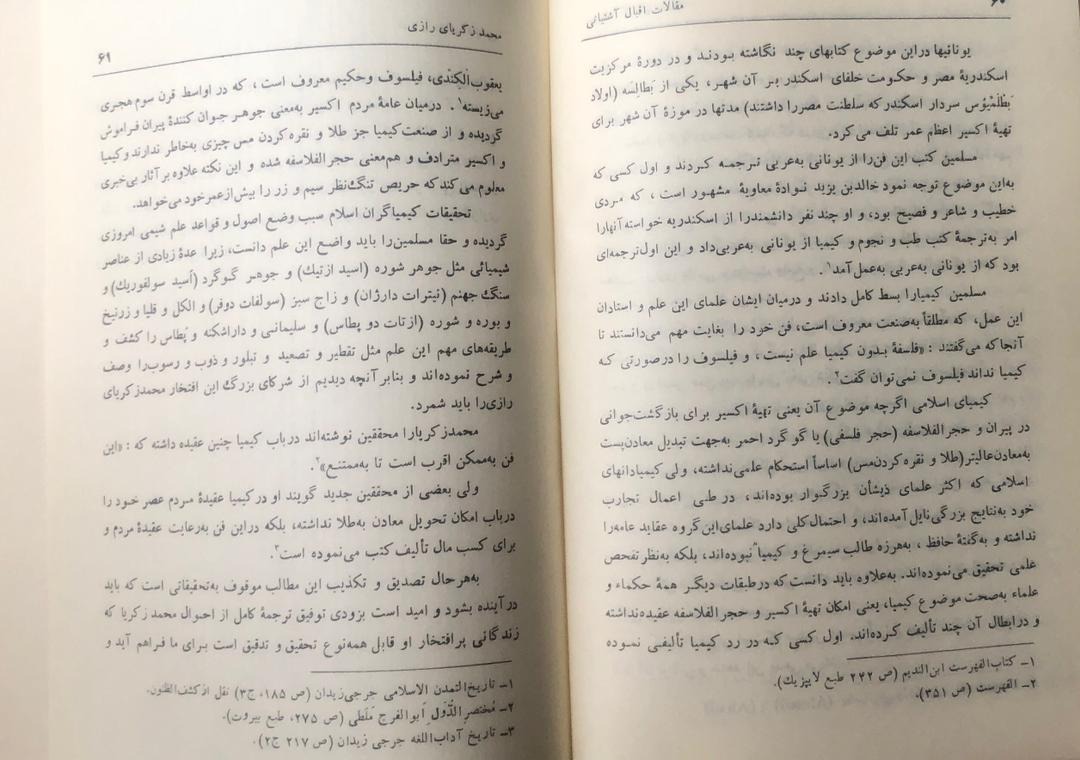 مقالات اقبال آشتیانی
۶۰
یونانیها دراین موضوع کتابهای چند نگاشته بودند و در دورهٔ مرکزیت
اسکندریهٔ مصر و حکومت خلفای اسکندر بر آن شهر، یکی از بَطالِسه (اولاد
بَطْلَمْیُوْس سردار اسکندر که سلطنت مصررا داشتند) مدتها در موزهٔ آن شهر برای
تهیهٔ اکسیر اعظم عمر تلف می‌کرد.
مسلمین کتب این فن‌را از یونانی به‌عربی ترجمه کردند و اول کسی که
به‌این موضوع توجه نمود خالدبن یزید نوادهٔ معاویهٔ مشهور است، که مردی
خطیب و شاعر و فصیح بود، و او چند نفر دانشمندرا از اسکندریه خواسته آنهارا
امر به‌ترجمهٔ کتب طب و نجوم و کیمیا از یونانی به‌عربی‌داد و این اول‌ترجمه‌ای
بود که از یونانی به‌عربی به‌عمل‌آمد۱.
مسلمین کیمیارا بسط کامل دادند و درمیان ایشان علمای این علم و استادان
این عمل، که مطلقاً به‌صنعت معروف است، فن خود را بغایت مهم می‌دانستند تا
آنجا که می‌گفتند: «فلسفهٔ بدون کیمیا علم نیست، و فیلسوف را درصورتی که
کیمیا نداند فیلسوف نمی‌توان گفت۲.
کیمیای اسلامی اگرچه موضوع آن یعنی تهیهٔ اکسیر برای بازگشت‌جوانی
در پیران و حجرالفلاسفه (حجر فلسفی) یا گوگرد احمر به‌جهت تبدیل معادن‌پست
به‌معادن‌عالیتر(طلا و نقره کردن‌مس) اساساً استحکام علمی‌نداشته، ولی کیمیادانهای
اسلامی که اکثر علمای ذیشأن بزرگوار بوده‌اند، در طی اعمال تجارب
خود به‌نتایج بزرگی‌نایل آمده‌اند، و احتمال‌کلی دارد علمای‌این گروه عقاید عامه‌را
نداشته و به‌گفتهٔ حافظ، به‌هرزه طالب سیمرغ و کیمیا نبوده‌اند، بلکه به‌نظر تفحص
علمی تحقیق می‌نموده‌اند. به‌علاوه باید دانست که درطبقات دیگر همهٔ حکماء و
علماء به‌صحت موضوع کیمیا، یعنی امکان تهیهٔ اکسیر و حجرالفلاسفه عقیده‌نداشته
و درابطال آن چند تألیف کرده‌اند. اول کسی که در رد کیمیا تألیفی نموده
۱ـ کتاب‌الفهرست ابن‌الندیم (ص ۲۴۲ طبع لایپزیک).
۲ـ الفهرست (ص ۳۵۱).
محمد زکریای رازی
۶۱
یعقوب‌اَلْکِنْدی، فیلسوف وحکیم معروف است، که در اواسط قرن سوم هجری
می‌زیسته۱. درمیان عامهٔ مردم اکسیر به‌معنی جوهر جوان کنندهٔ پیران فراموش
گردیده و از صنعت‌کیمیا جز طلا و نقره کردن مس چیزی به‌خاطر ندارند وکیمیا
و اکسیر مترادف و هم‌معنی حجرالفلاسفه شده و این نکته علاوه بر آثار بی‌خبری
معلوم می‌کند که حریص تنگ‌نظر سیم و زر را بیش‌ازعمرخود می‌خواهد.
تحقیقات کیمیاگران اسلام سبب وضع اصول و قواعد علم شیمی امروزی
گردیده و حقا مسلمین‌را باید واضع این علم دانست، زیرا عدهٔ زیادی از عناصر
شیمیائی مثل جوهر شوره (اسید ازتیک) و جوهر گوگرد (اَسید سولفوریک) و
سنگ جهنم (نیترات دارژان) و زاج سبز (سولفات دوفر) و الکل و قلیا و زرنیخ
و بوره و شوره (ازتات دو پطاس) و سلیمانی و داراشکنه و پُطاس را کشف و
طریقه‌های مهم این علم مثل تقطیر و تصعید و تبلور و ذوب و رسوب‌را وصف
و شرح نموده‌اند و بنابر آنچه دیدیم از شرکای بزرگ این افتخار محمدزکریای
رازی‌را باید شمرد.
محمدزکریارا محققین نوشته‌اند درباب کیمیا چنین عقیده داشته که: «این
فن به‌ممکن اقرب است تا به‌ممتنع»۲.
ولی بعضی از محققین جدید گویند او درکیمیا عقیدهٔ مردم عصر خود را
درباب امکان تحویل معادن به‌طلا نداشته، بلکه دراین فن به‌رعایت عقیدهٔ مردم و
برای کسب مال تألیف کتب می‌نموده است۳.
به‌هرحال تصدیق و تکذیب این مطالب موقوف به‌تحقیقاتی است که باید
درآینده بشود و امید است بزودی توفیق ترجمهٔ کامل از احوال محمد زکریا که
زندگانی پرافتخار او قابل همه‌نوع تحقیق و تدقیق است برای ما فراهم آید و
۱ـ تاریخ‌التمدن الاسلامی جرجی‌زیدان (ص ۱۸۵، ج۳) نقل ازکشف‌الظنون.
۲ـ مُختصرالدُّوَل اَبوالفرج مَلَطی (ص ۲۷۵، طبع بیروت).
۳ـ تاریخ آداب‌اللغه جرجی زیدان (ص ۲۱۷ ج۲).